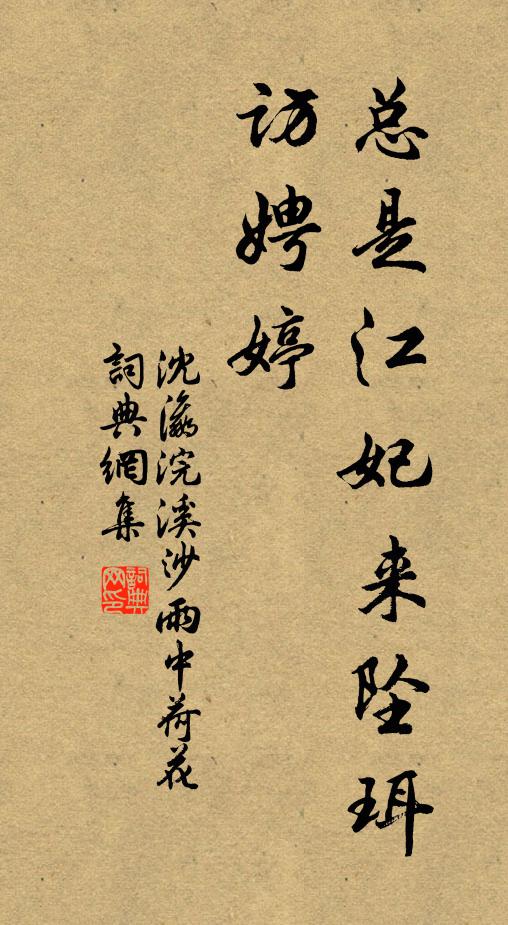 总是江妃来坠珥
访娉婷
沈瀛浣溪沙雨中荷花
詞典網集
詞典网印